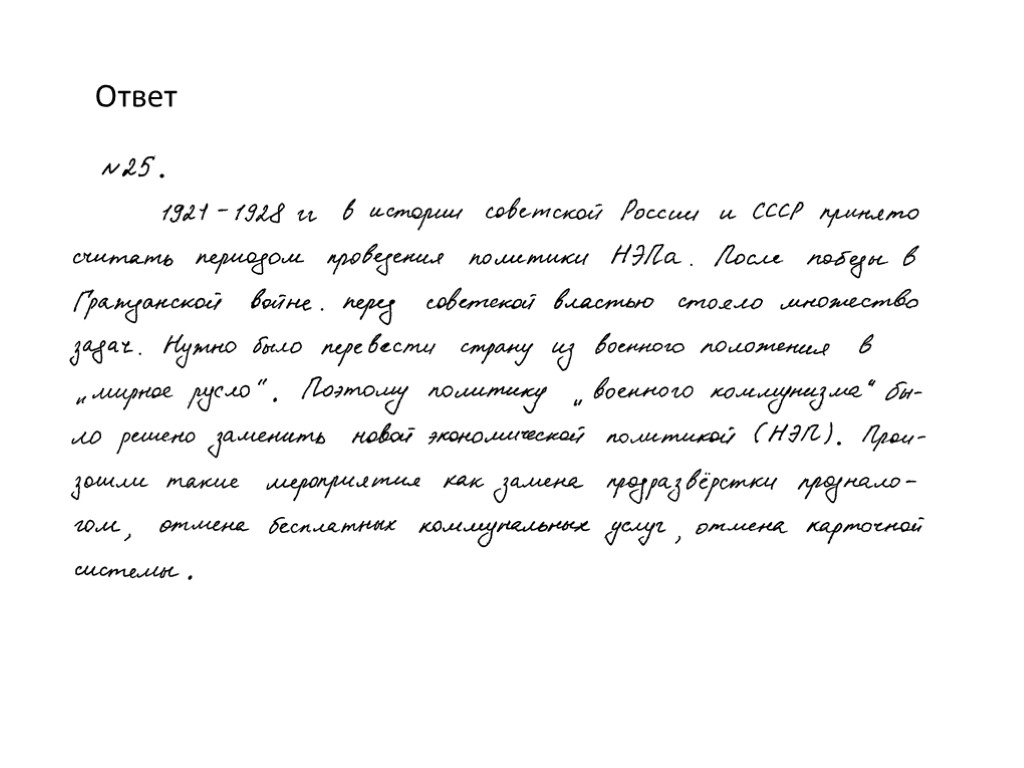 Ответ
№25.
1921-1928 гг в истории советской России и СССР принято
считать периодом проведения политики НЭПа. После победы в
Гражданской войне. перед советской властью стояло множество
задач. Нужно было перевести страну из военного положения в
„мирное русло". Поэтому политику „военного коммунизма" бы-
ло решено заменить новой экономической политикой (НЭП). Прои-
зошли такие мероприятия как замена продразвёрстки проднало-
гом, отмена бесплатных коммунальных услуг, отмена карточной
системы.